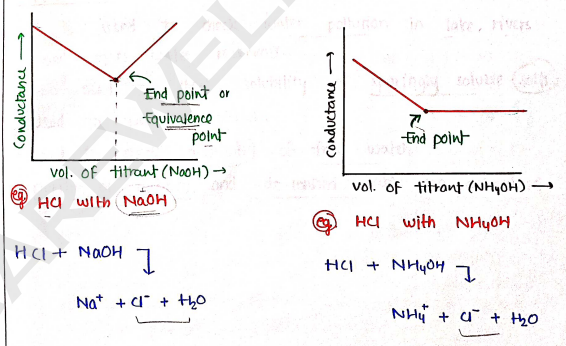 Conductance →
End point or
Equivalence
point
vol. of titrant (NaOH) →
eg. HCl with NaOH
HCl + NaOH
Na⁺ + Cl⁻ + H₂O
Conductance →
End point
vol. of titrant (NH₄OH) →
eg. HCl with NH₄OH
HCl + NH₄OH
NH₄⁺ + Cl⁻ + H₂O